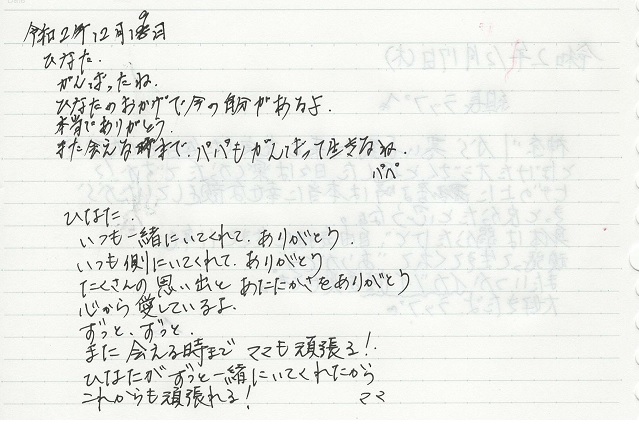 令和2年12月19日
ひなた.
がんばったね.
ひなたのおかげで今の自分があるよ.
本当でありがとう.
また会える時まで.パパもがんばって生きるね.
パパ
ひなた.
いつも一緒にいてくれて.ありがとう.
いつも側にいてくれて.ありがとう
たくさんの思い出と あたたかさをありがとう
心から愛しているよ.
ずっと、ずっと.
また会える時まで ママも頑張る!
ひなたがずっと一緒にいてくれたから
これからも頑張れる!
ママ